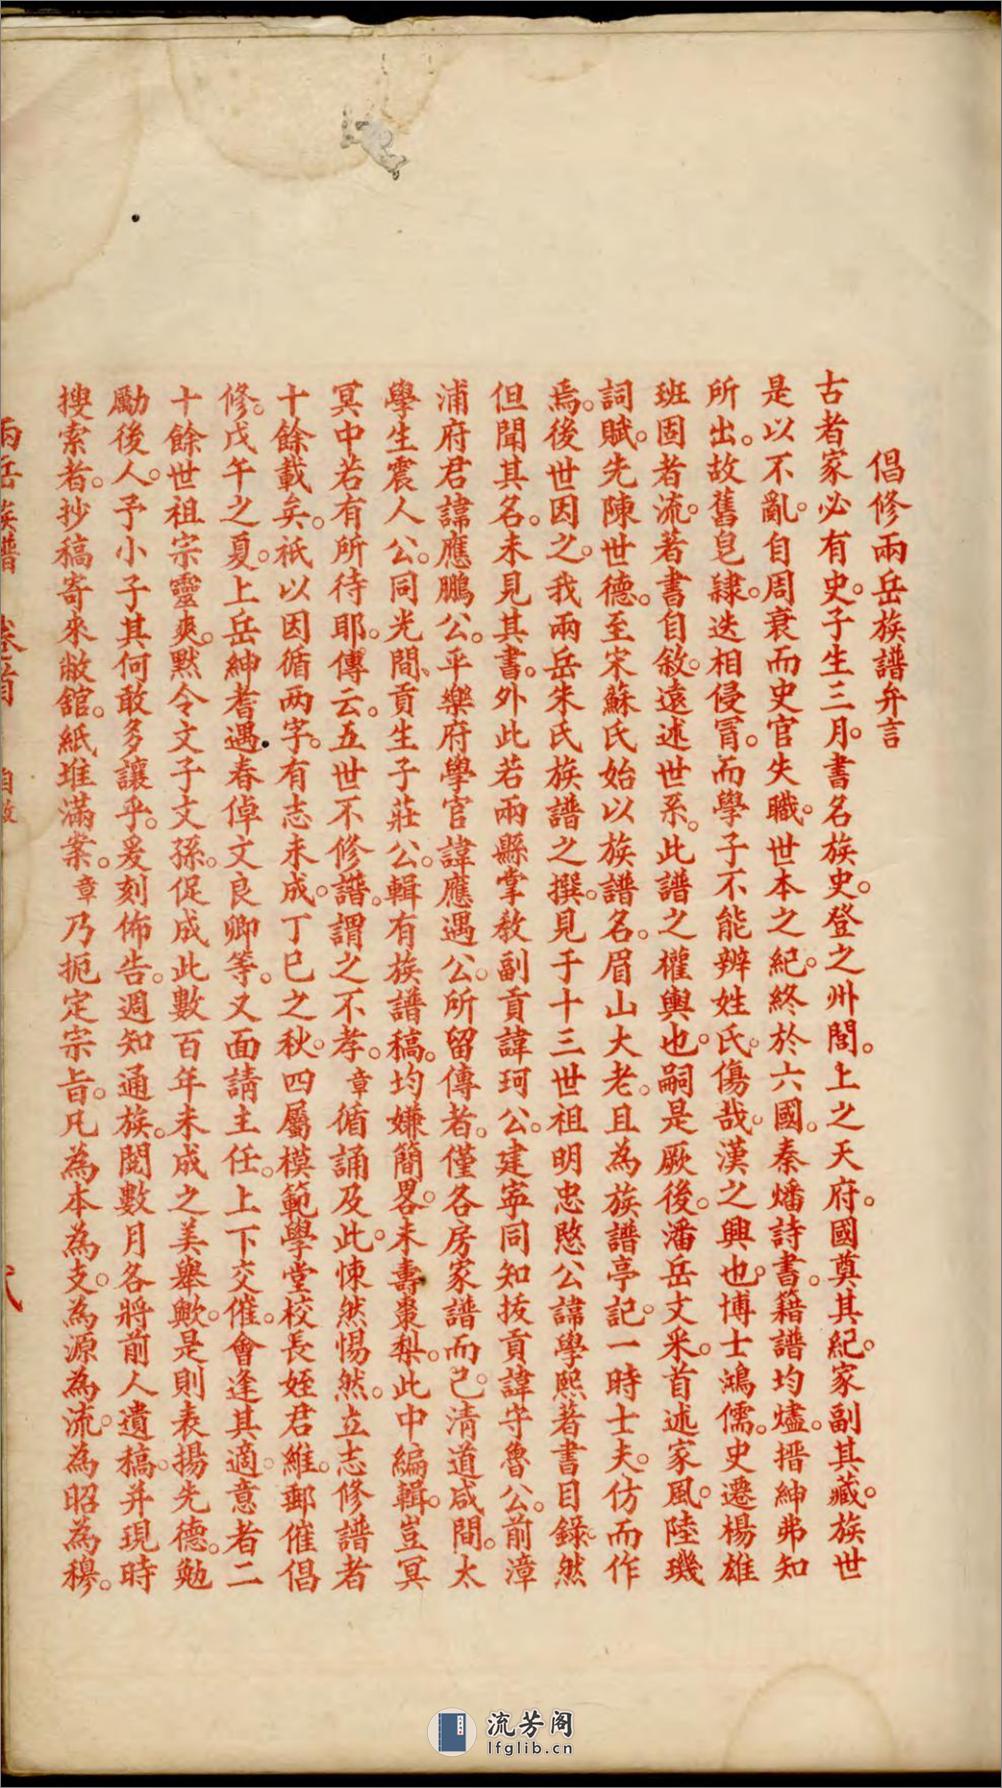 倡修兩岳族譜弁言
古者家必有史。子生三月。書名族史。登之州閭。上之天府。國奠其紀。家副其藏。族世
是以不亂。自周衰而史官失職。世本之紀。終於六國。秦燔詩書。籍譜均燼。搢紳弗知
所出。故舊皂隸。迭相侵冒。而學子不能辨姓氏。傷哉。漢之興也。博士鴻儒。史遷楊雄
班固者流。若書自敘。遠述世系。此譜之權輿也。嗣是厥後。潘岳文采。首述家風。陸璣
詞賦。先陳世德。至宋蘇氏始以族譜名。眉山大老。且為族譜亭記。一時士夫。仿而作
焉。後世因之。我兩岳朱氏族譜之撰。見于十三世祖明忠愍公諱學熙著書目錄。然
但聞其名。未見其書。外此若兩縣掌教副貢諱珂公。建寧同知拔貢諱守魯公。前漳
浦府君諱應鵬公。平樂府學官諱應遇公。所留傳者。僅各房家譜而已。清道咸間。太
學生震人公。同光間、貢生子莊公。輯有族譜稿。均嫌簡畧。未壽棗梨。此中編輯。豈冥
冥中若有所待耶。傳云。五世不修譜。謂之不孝。章循誦及此。悚然惕然。立志修譜者
十餘載矣。祇以因循两字。有志未成。丁巳之秋。四屬模範學堂校長姪君維。郵催倡
修。戊午之夏。上岳紳耆遇春倬文良卿等。又面請主任。上下交催。會逢其適。意者二
十餘世祖宗靈爽。默令文子文孫。促成此數百年未成之美舉歟。是則表揚先德。勉
勵後人。予小子其何敢多讓乎。爰刻佈告。週知通族。閱數月各將前人遺稿。并現時
搜索者。抄稿寄來敝舘。紙堆滿案。章乃扼定宗旨。凡為本為支。為源為流。為昭為穆。
兩岳族譜 卷首
流芳阁
lfglib.cn